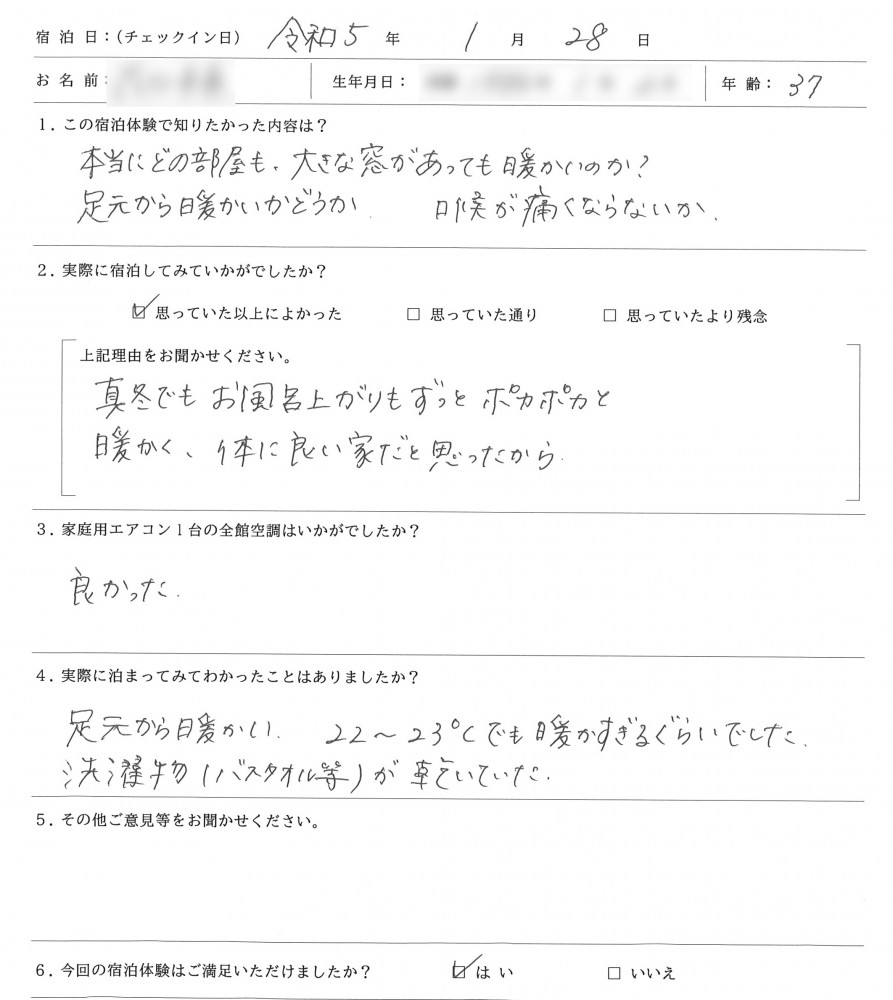 宿泊日：(チェックイン日) 令和5年 1月 28日
お名前： 生年月日： 年齢： 37
1. この宿泊体験で知りたかった内容は？
本当にどの部屋も、大きな窓があっても暖かいのか？
足元から暖かいかどうか 口候が痛くならないか、
2. 実際に宿泊してみていかがでしたか？
☑ 思っていた以上によかった □ 思っていた通り □ 思っていたより残念
上記理由をお聞かせください。
真冬でもお風呂上がりもずっとポカポカと
暖かく、体に良い家だと思ったから.
3. 家庭用エアコン1台の全館空調はいかがでしたか？
良かった.
4. 実際に泊まってみてわかったことはありましたか？
足元から暖かい. 22〜23℃でも暖かすぎるぐらいでした.
洗濯物(バスタオル等)が乾いていた.
5. その他ご意見等をお聞かせください。
6. 今回の宿泊体験はご満足いただけましたか？ ☑ はい □ いいえ